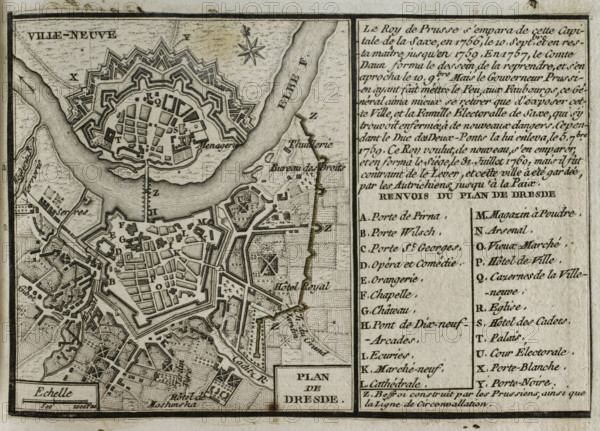 VILLE-NEUVE
X
Y
ELBE F.
Z
Menagerie
Thuillerie
Bureau des Droits
Z
H
Serfres
Z
Hôtel Royal
Z
Hôtel de
Moshinska
Echelle
PLAN
DE
DRESDE.
Le Roy de Prusse s'empara de cette Capi-
tale de la Saxe, en 1756, le 10 Sept.bre et en res-
ta maitre jusqu'en 1759. En 1757, le Comte
Daun forma le dessein de la reprendre, et s'en
aprocha le 10. 9.bre Mais le Gouverneur Prussi-
en ayant fait mettre le Feu, aux Fauxbourgs, ce Gé-
néral aima mieux se retirer que d'exposer cet-
te Ville, et la Famille Electoralle de Saxe, qui s'y
trouvoit enfermée à de nouveaux dangers. Cepen-
dant le Duc des Deux-Ponts la lui enleva, le 4 7.bre
1759. Ce Roy voulut, de nouveau, s'en emparer,
et en forma le Siége, le 31. Juillet 1760, mais il fut
contraint de le Lever, et cette ville à été gardée,
par les Autrichiens jusqu'à la Paix.
RENVOIS DU PLAN DE DRESDE
A. Porte de Pirna.
B. Porte Wilsch.
C. Porte S.t Georges.
D. Opéra et Comédie.
E. Orangerie.
F. Chapelle.
G. Château.
H. Pont de Dix-neuf-
Arcades.
I. Ecuries.
K. Marché-neuf.
L. Cathédrale.
M. Magazin à Poudre.
N. Arsenal.
O. Vieux-Marché.
P. Hôtel de Ville.
Q. Cazernes de la Ville-
neuve.
R. Eglise.
S. Hôtel des Cadets.
T. Palais.
U. Cour Electorale.
X. Porte-Blanche.
Y. Porte-Noire.
Z. Beffroi construit par les Prussiens, ainsi que
la Ligne de Circonvallation.